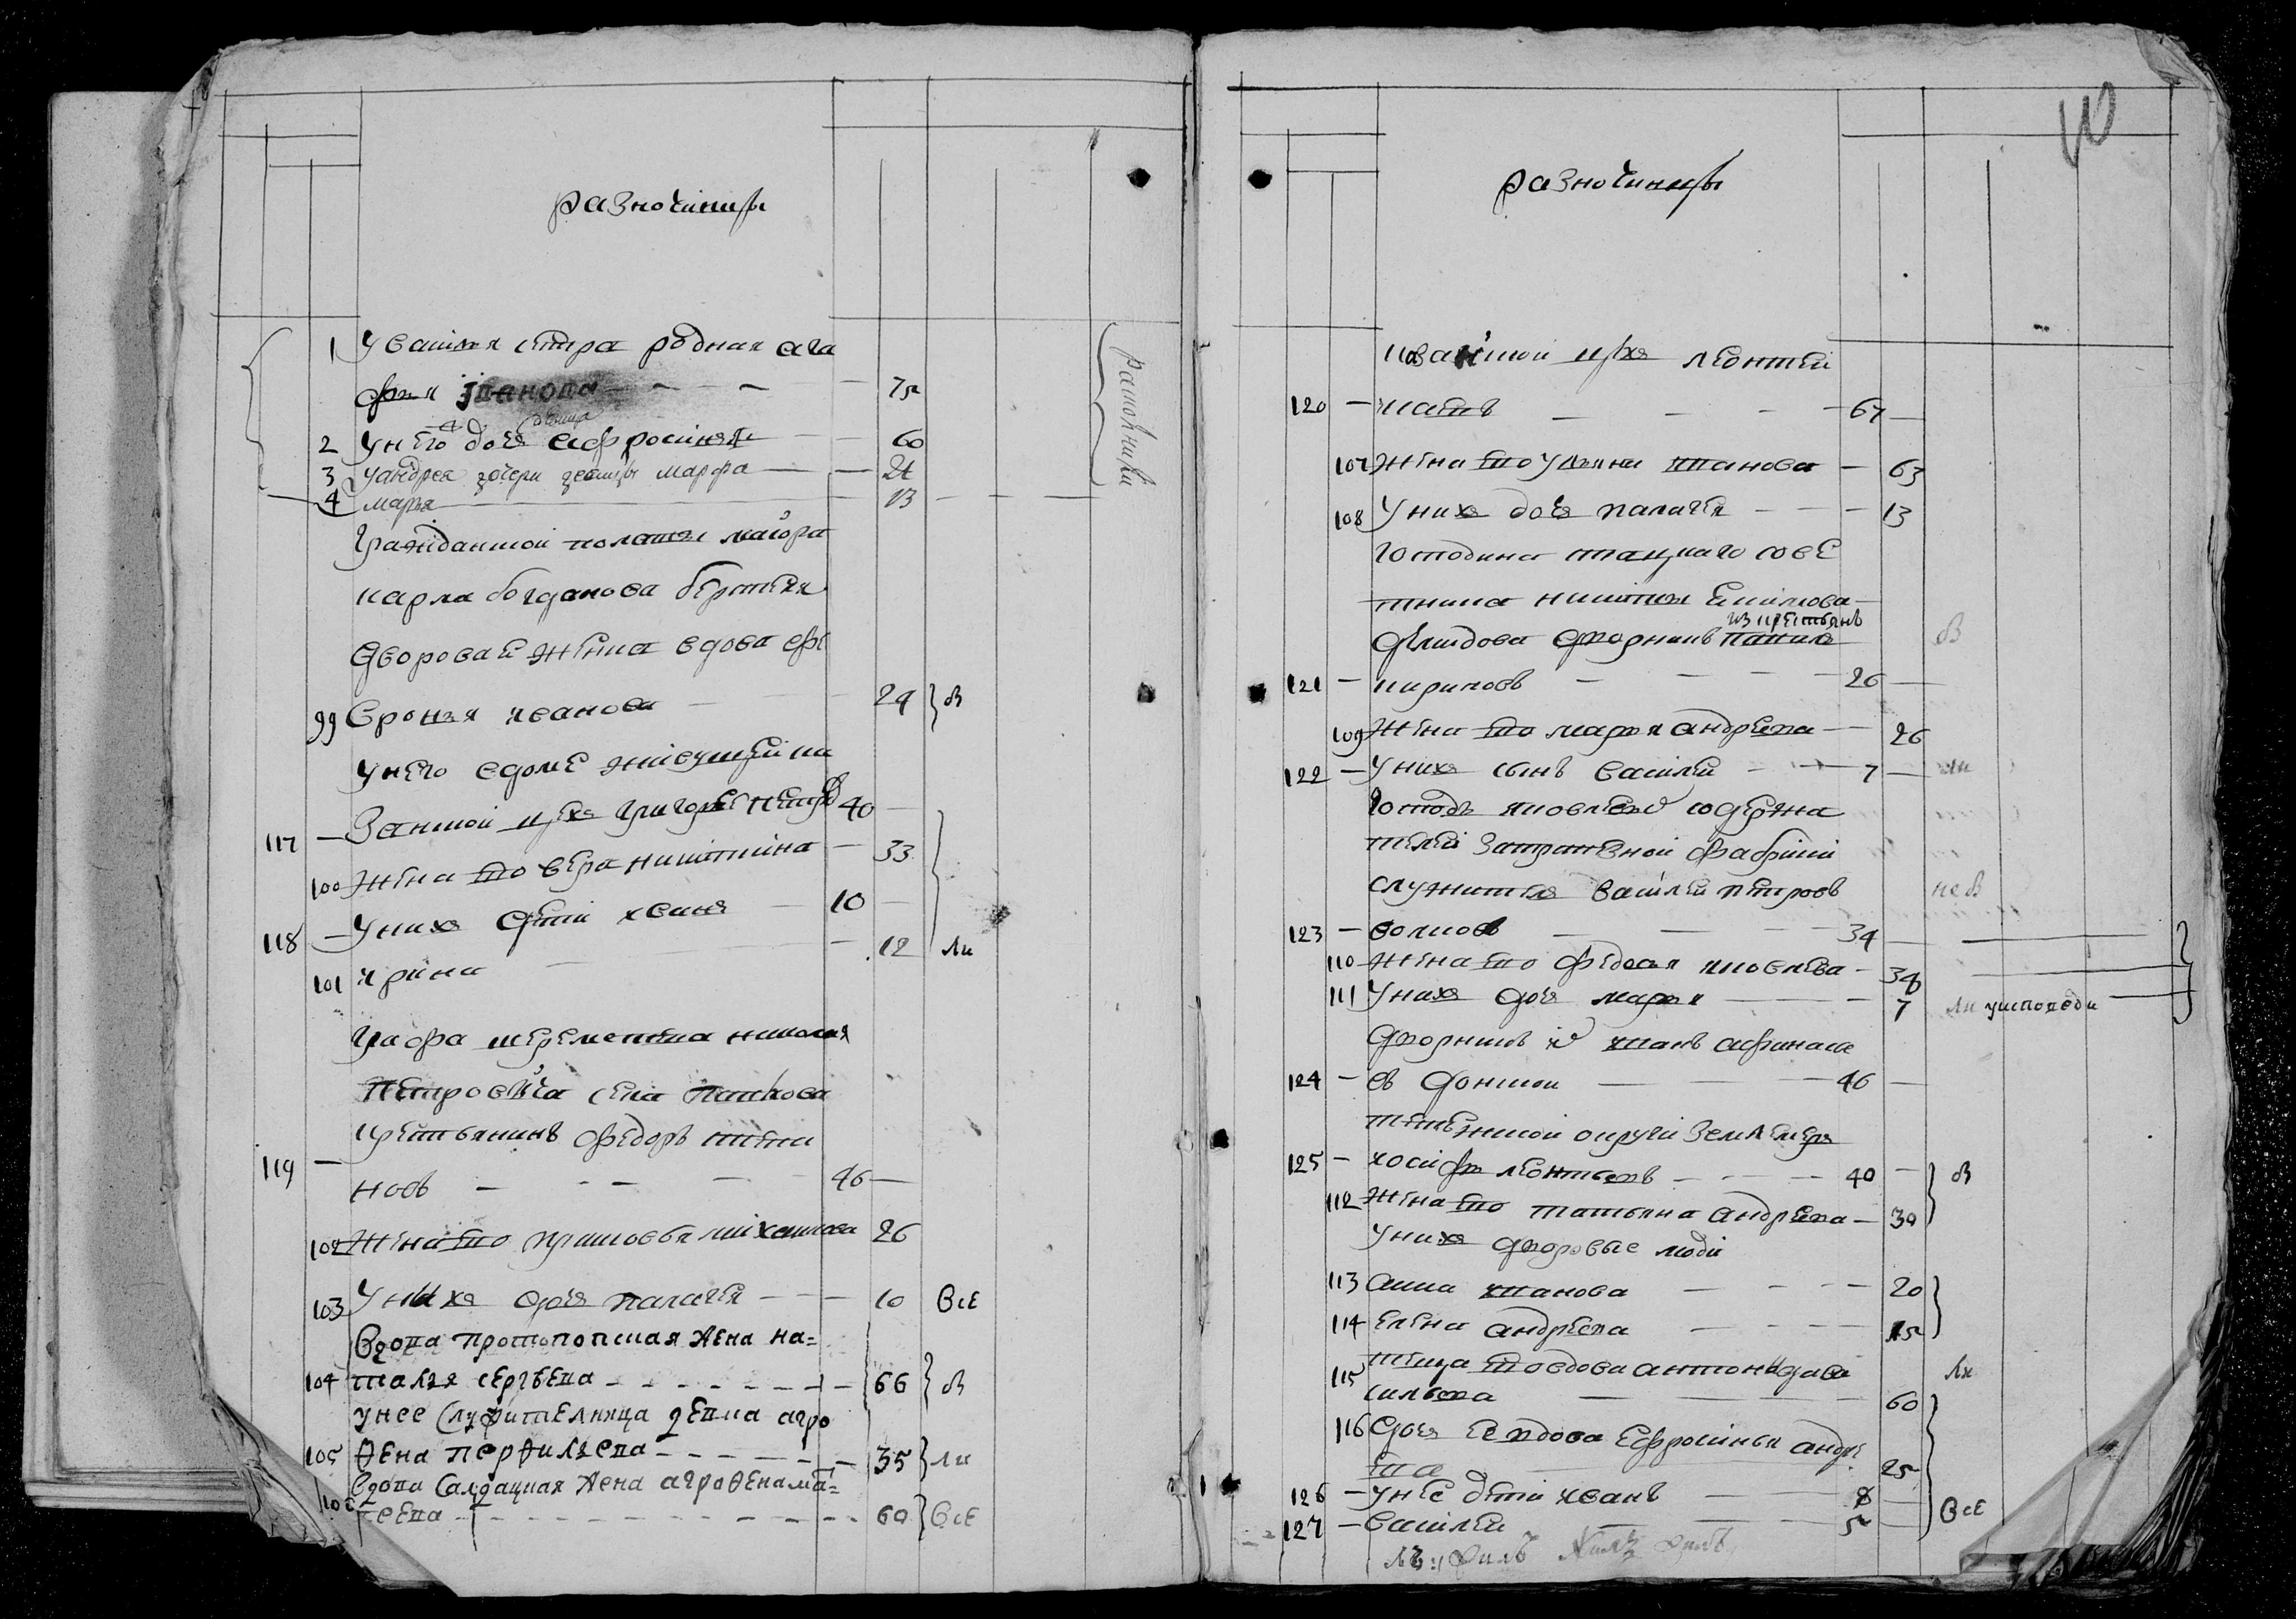 разночинцы
1 У Василья сестра родная ага
фия іванова — 75
2 У него дочь девица афросинья — 60
3 У андрея дочери девицы марфа — 21
4 марья — 13
раскольники
Гражданской полаты маіора
карла богданова
дворовай женка вдова еф
99 сронья иванова — 29 в
У него в доме живущей ка
117 — занской цеха григорей петров 40 —
100 Жена ево вера никитина — 33
118 — У них дети иванъ — 10 —
101 ирина — 12 ли
Графа шереметева николая
Петровича села Павлова
крестьянинъ федоръ степа
119 — новъ — 46 —
102 Жена ево прасковья михаилова 26
103 У них дочь палагея — 10 все
Вдова протопопская жена на=
104 талья сергѣева — 66 в
У нее служителница девка агро
105 фена перфильева — 35 ли
Вдова салдацкая жена агрофена ма=
106 тсева — 60 все
10
разночинцы
казанской цеха леонтей
120 — — 67 —
107 Жена ево ульяна иванова — 63
108 У них дочь палагея — 13
Господина статцкаго сове
тника никиты екимова
демидова дворникъ из крестьянъ гаврила в
121 — кириловъ — 26 —
109 Жена ево марья андреева — 26
122 — У них сынъ василей — 7 — ли
Господъ яковлевых содержа
телей затрапезной фабрики
служитель василей петровъ не в
123 — волковъ — 34 —
110 Жена ево федосья яковлева — 38
111 У них дочь марья — 7 ли уисповеди
Дворникъ их иванъ афанась
124 — евъ донской — 46 —
округи землемеръ
125 — иосифъ леонтьевъ — 40 — в
112 Жена ево татьяна андреева — 30
У них дворовые люди
113 анна иванова — 20
114 елена андреева — 15
115 теща ево вдова антонида ва ли
сильева — 60
116 Дочь ее вдова ефросинья андре
ева — 25
126 — У нее дети иванъ — 8 —
127 — василей — 5 — все